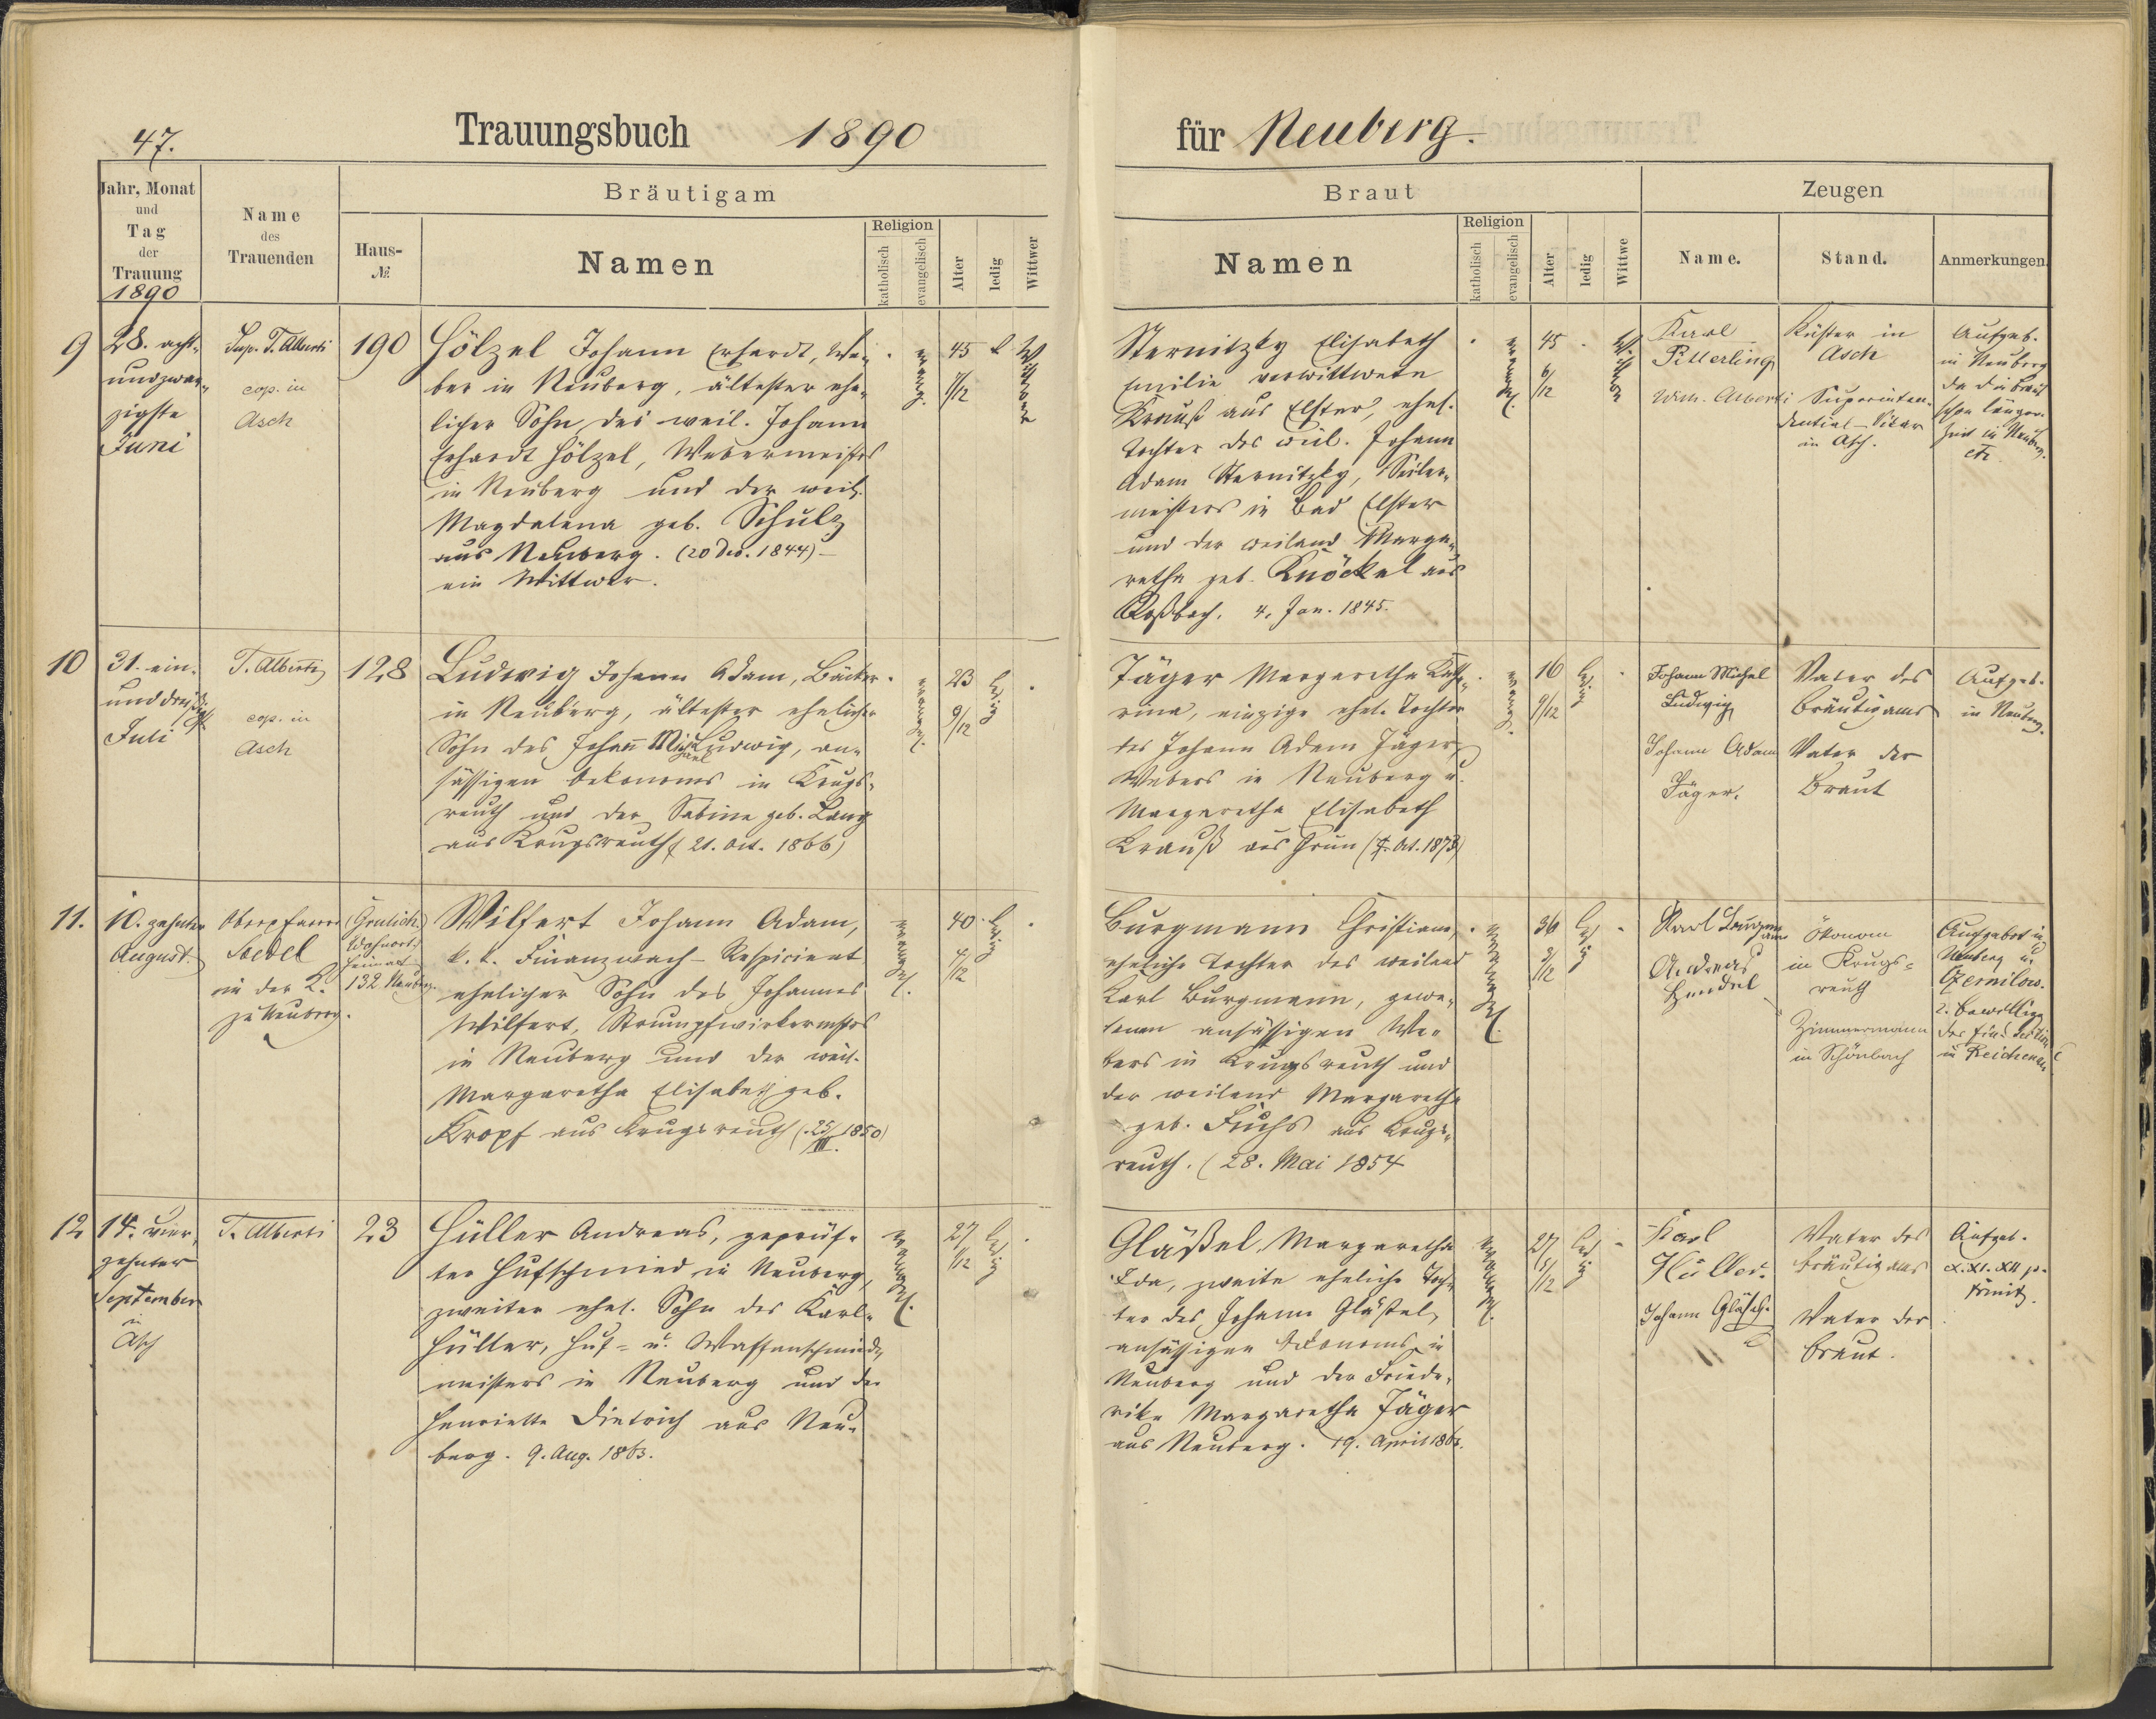 47.
Trauungsbuch 1890
für Neuberg.
Jahr, Monat
und
Tag
der
Trauung
1890
Name
des
Trauenden
Bräutigam
Haus-
№
Namen
Religion
katholisch
evangelisch
Alter
ledig
Wittwer
Braut
Namen
Religion
katholisch
evangelisch
Alter
ledig
Wittwe
Zeugen
Name.
Stand.
Anmerkungen.
9
28. acht-
undzwan-
zigste
Juni
Sup. T. Alberti
cop. in
Asch
190
Hölzel Johann Erhardt, We-
ber in Neuberg, ältester ehe-
licher Sohn des weil. Johann
Erhardt Hölzel, Webermeisters
in Neuberg und der weil.
Magdalena geb. Schulz
aus Neuberg. (20 Dec. 1844) –
ein Wittwer.
evang.
45
Wittwer
Sternitzky Elisabeth
Emilie verwittwete
Krauß aus Elster, ehel.
Tochter des weil. Johann
Adam Sternitzky, Seiler-
meisters in Bad Elster
und der weiland Marga-
retha geb. Knöckel aus
Roßbach. 4. Jan. 1845.
45
6/12
Karl
Pitterling
Wilh. Alberti
Küster in
Asch
Superinten-
dential-Vicar
in Asch.
Aufgeb.
in Neuberg
da die Braut
schon länger.
Zeit in Neuberg.
10
31. ein-
unddreißigst.
Juli
T. Alberti
cop. in
Asch
128
Ludwig Johann Adam, Bäcker
in Neuberg, ältester ehelicher
Sohn des Johann Michael Ludwig, an-
sässigen Oekonoms in Krugs-
reuth und der Sabina geb. Lang
aus Krugsreuth (21. Oct. 1866)
evangel.
23
9/12
ledig
Jäger Margaretha Katha-
rina, einzige ehel. Tochter
des Johann Adam Jäger,
Webers in Neuberg u.
Margaretha Elisabeth
Krauß aus Grün (7. Oct. 1873)
evang.
16
9/12
ledig
Johann Michel
Ludwig
Johann Adam
Jäger.
Vater des
Bräutigams
Vater der
Braut
Aufgeb.
in Neuberg.
11.
10. zehnter
August.
Oberpfarrer
in der K.
zu Neuberg.
(Grulich)
Wohnort)
Heimat
132 Neuberg.
Wilfert Johann Adam,
k. k. Finanzwach-Respicient
ehelicher Sohn des Johannes
Wilfert, Strumpfwirkermstrs
in Neuberg und der weil.
Margaretha Elisabeth geb.
Kropf aus Krugsreuth (25/III. 1850)
evangel.
40
4/12
ledig
Burgmann Christiana,
eheliche Tochter des weiland
Karl Burgmann, gewe-
senen ansässigen We-
bers in Krugsreuth und
der weiland Margaretha
geb. Fuchs aus Krugs-
reuth. (28. Mai 1854
evangel.
36
ledig
Karl Burgmann
Andreas
Hendel
Ökonom
in Krugs-
reuth
Zimmermann
in Schönbach
Aufgebot in
Neuberg u.
Czernilow.
in Reichenau
12
14. vier-
zehnter
September
in
Asch
T. Alberti
23
Hüller Andreas, geprüf-
ter Hufschmied in Neuberg,
zweiter ehel. Sohn des Karl
Hüller, Huf- u. Waffenschmied-
meisters in Neuberg und der
Henriette Dietrich aus Neu-
berg. 9. Aug. 1863.
evangel.
27
1/12
ledig
Gläßel Margaretha
Ida, zweite eheliche Toch-
ter des Johann Gläßel,
ansässigen Oekonoms in
Neuberg und der Friede-
rike Margaretha Jäger
aus Neuberg. 19. April 1863.
evangel.
27
5/12
ledig
Karl
Hüller.
Johann Gläßel
Vater des
Bräutigams
Vater der
Braut.
Aufgeb.
X. XI. XII p.
Trinit.